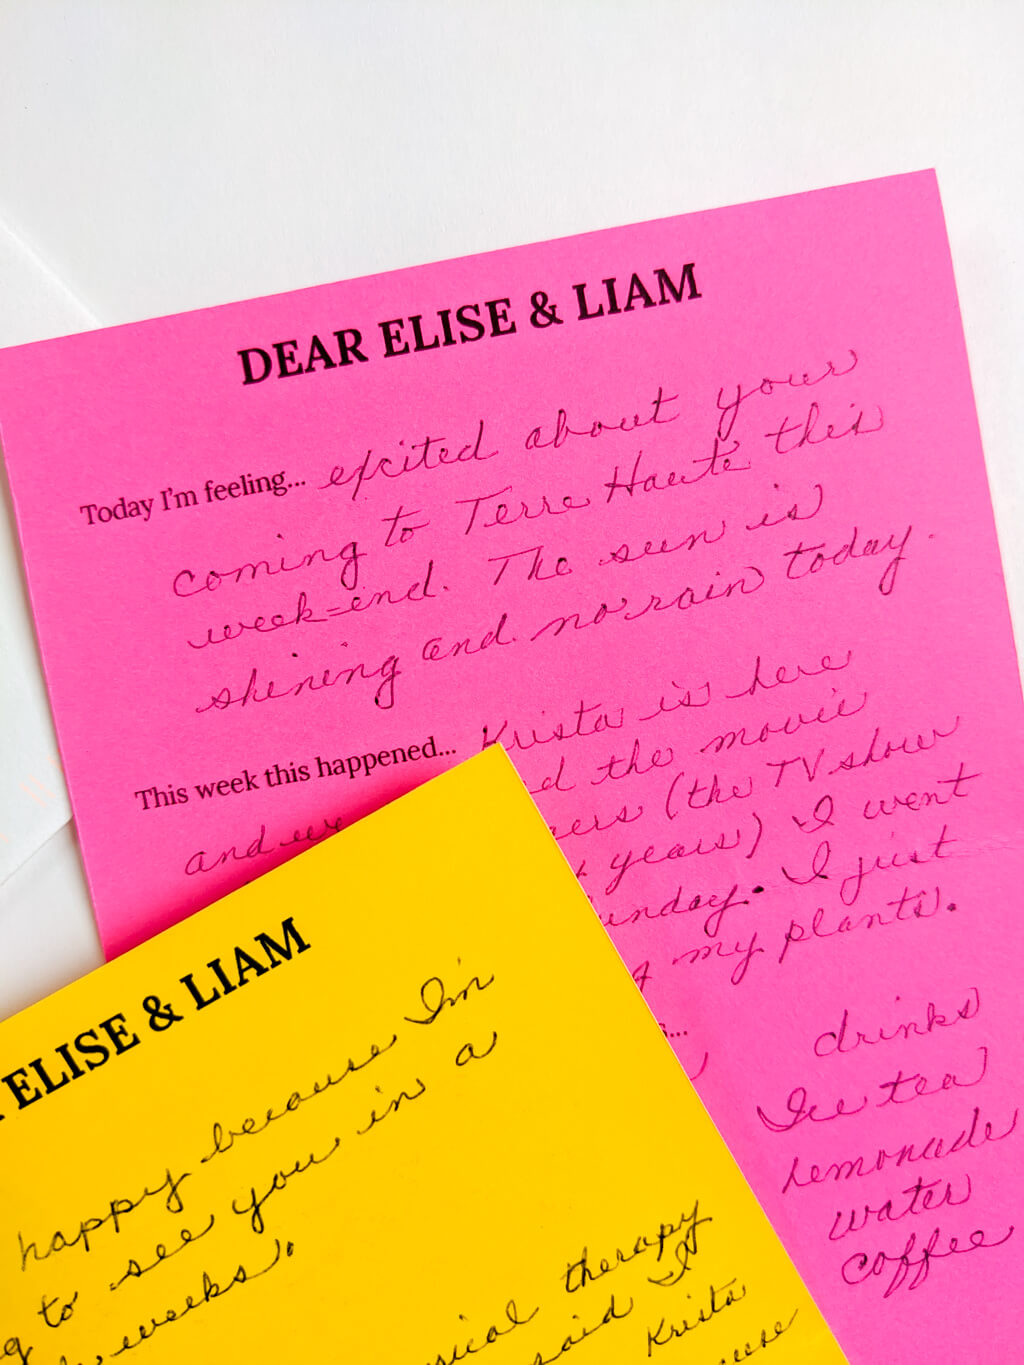 DEAR ELISE & LIAM
Today I'm feeling... excited about your
coming to Terre Haute this
week=end. The sun is
shining and no rain today.
This week this happened... Krista is here
and we d the movie
ers (the TV show
years) I went
unday. I just
my plants.
drinks
Ice tea
lemonade
water
coffee
ELISE & LIAM
happy because I'm
to see you in a
weeks.
sical therapy
said I
Krista